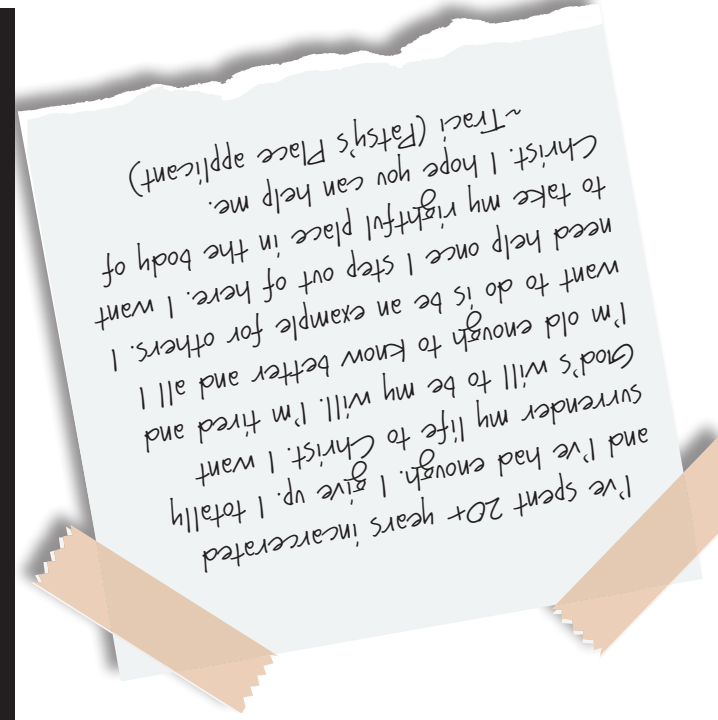 I've spent 20+ years incarcerated
and I've had enough. I give up. I totally
surrender my life to Christ. I want
God's will to be my will. I'm tired and
I'm old enough to know better and all I
want to do is be an example for others. I
need help once I step out of here. I want
to take my rightful place in the body of
Christ. I hope you can help me.
~Traci (Patsy's Place applicant)